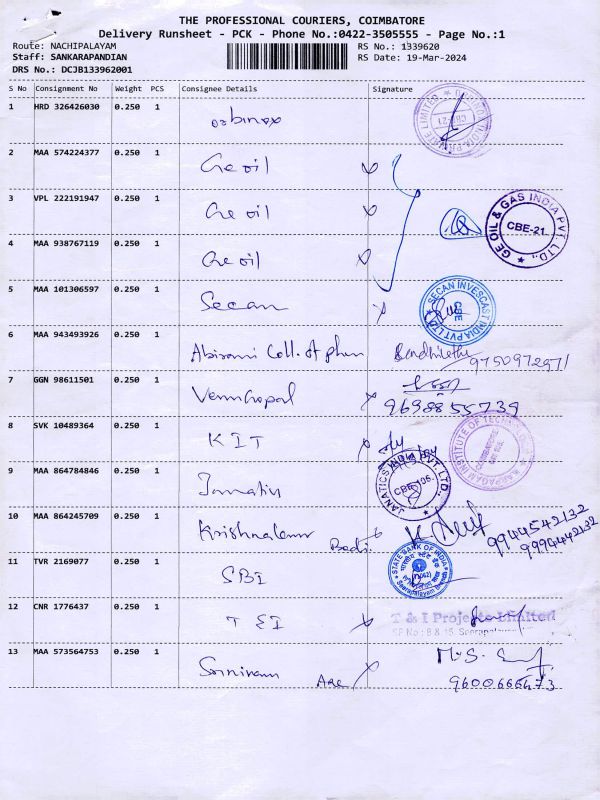 THE PROFESSIONAL COURIERS, COIMBATORE
Delivery Runsheet - PCK - Phone No.:0422-3505555 - Page No.:1
Route: NACHIPALAYAM
RS No.: 1339620
Staff: SANKARAPANDIAN
RS Date: 19-Mar-2024
DRS No.: DCJB133962001
S No Consignment No Weight PCS Consignee Details Signature
1 HRD 326426030 0.250 1
CBE-21
2 MAA 574224377 0.250 1 Ge oil
3 VPL 222191947 0.250 1 Ge oil
GE OIL & GAS INDIA PVT. LTD.,
CBE-21.
4 MAA 938767119 0.250 1 Ge oil
5 MAA 101306597 0.250 1 Secan
SECAN INVESCAST INDIA PVT LTD
CBE
6 MAA 943493926 0.250 1 Abirami Coll. of pharm
9750972971
7 GGN 98611501 0.250 1 Venugopal
9698855739
8 SVK 10489364 0.250 1 KIT
KARPAGAM INSTITUTE OF TECHNOLOGY
COIMBATORE
9 MAA 864784846 0.250 1 Janatics
JANATICS INDIA PVT. LTD.,
CBE-106.
10 MAA 864245709 0.250 1
9944542132
9994442132
11 TVR 2169077 0.250 1 SBI
STATE BANK OF INDIA
12 CNR 1776437 0.250 1
T & I Projects Limited
13 MAA 573564753 0.250 1
9600666473